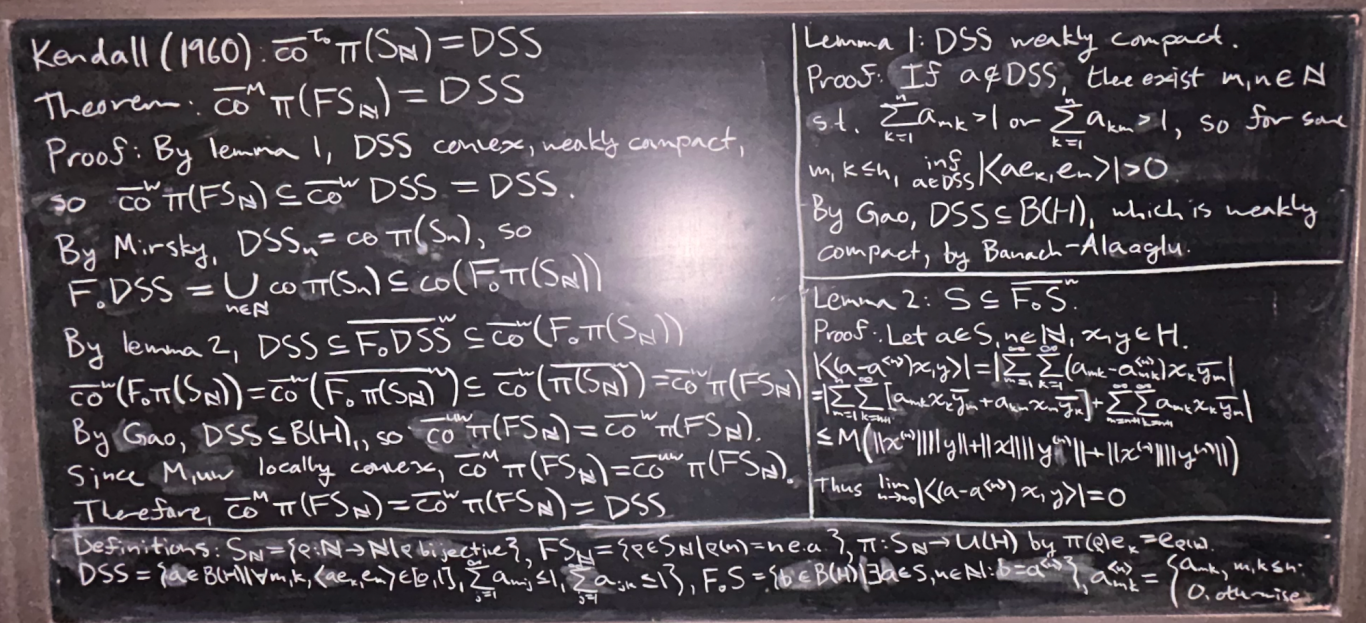 Kendall (1960): c̅o̅^τ₀ π(S_ℕ) = DSS
Theorem: c̅o̅^M π(FS_ℕ) = DSS
Proof: By lemma 1, DSS convex, weakly compact,
so c̅o̅^w π(FS_ℕ) ⊆ c̅o̅^w DSS = DSS.
By Mirsky, DSS_n = co π(S_n), so
F₀DSS = ⋃_{n∈ℕ} co π(S_n) ⊆ co(F₀π(S_ℕ))
By lemma 2, DSS ⊆ \overline{F₀DSS}^w ⊆ c̅o̅^w(F₀π(S_ℕ))
c̅o̅^w(F₀π(S_ℕ)) = c̅o̅^w(\overline{F₀π(S_ℕ)}^w) ⊆ c̅o̅^w(\overline{π(S_ℕ)}^w) = c̅o̅^w π(FS_ℕ)
By Gao, DSS ⊆ B(H)₁, so c̅o̅^uw π(FS_ℕ) = c̅o̅^w π(FS_ℕ).
Since M, uw locally convex, c̅o̅^M π(FS_ℕ) = c̅o̅^uw π(FS_ℕ).
Therefore, c̅o̅^M π(FS_ℕ) = c̅o̅^w π(FS_ℕ) = DSS
Lemma 1: DSS weakly compact.
Proof: If a∉DSS, there exist m,n∈ℕ
s.t. ∑_{k=1}^n a_{mk} > 1 or ∑_{k=1}^n a_{km} > 1, so for some
m,k≤n, inf_{a∈DSS} |<ae_k, e_m>| > 0
By Gao, DSS ⊆ B(H)₁ which is weakly
compact, by Banach-Alaoglu.
Lemma 2: S ⊆ \overline{F₀S}^w.
Proof: Let a∈S, n∈ℕ, x,y∈H.
|<(a-a^{(n)})x,y>| = |∑_{m=1}^∞ ∑_{k=1}^∞ (a_{mk} - a_{mk}^{(n)}) x_k \overline{y_m}|
= |∑_{m=1}^n ∑_{k=n+1}^∞ [a_{mk} x_k \overline{y_m} + a_{km} x_m \overline{y_k}] + ∑_{m=n+1}^∞ ∑_{k=n+1}^∞ a_{mk} x_k \overline{y_m}|
≤ M(||x^{(n)}|| ||y|| + ||x|| ||y^{(n)}|| + ||x^{(n)}|| ||y^{(n)}||)
Thus lim_{n→∞} |<(a-a^{(n)})x,y>| = 0
Definitions: S_ℕ = {ρ:ℕ→ℕ | ρ bijective}, FS_ℕ = {ρ∈S_ℕ | ρ(n)=n e.a.}, π:S_ℕ→U(H) by π(ρ)e_k = e_{ρ(k)}.
DSS = {a∈B(H) | ∀m,k, <ae_k,e_m>∈[0,1], ∑_{j=1}^∞ a_{mj} ≤ 1, ∑_{j=1}^∞ a_{jk} ≤ 1}, F₀S = {b∈B(H) | ∃a∈S, n∈ℕ: b=a^{(n)}}, a_{mk}^{(n)} = { a_{mk}, m,k≤n; 0, otherwise